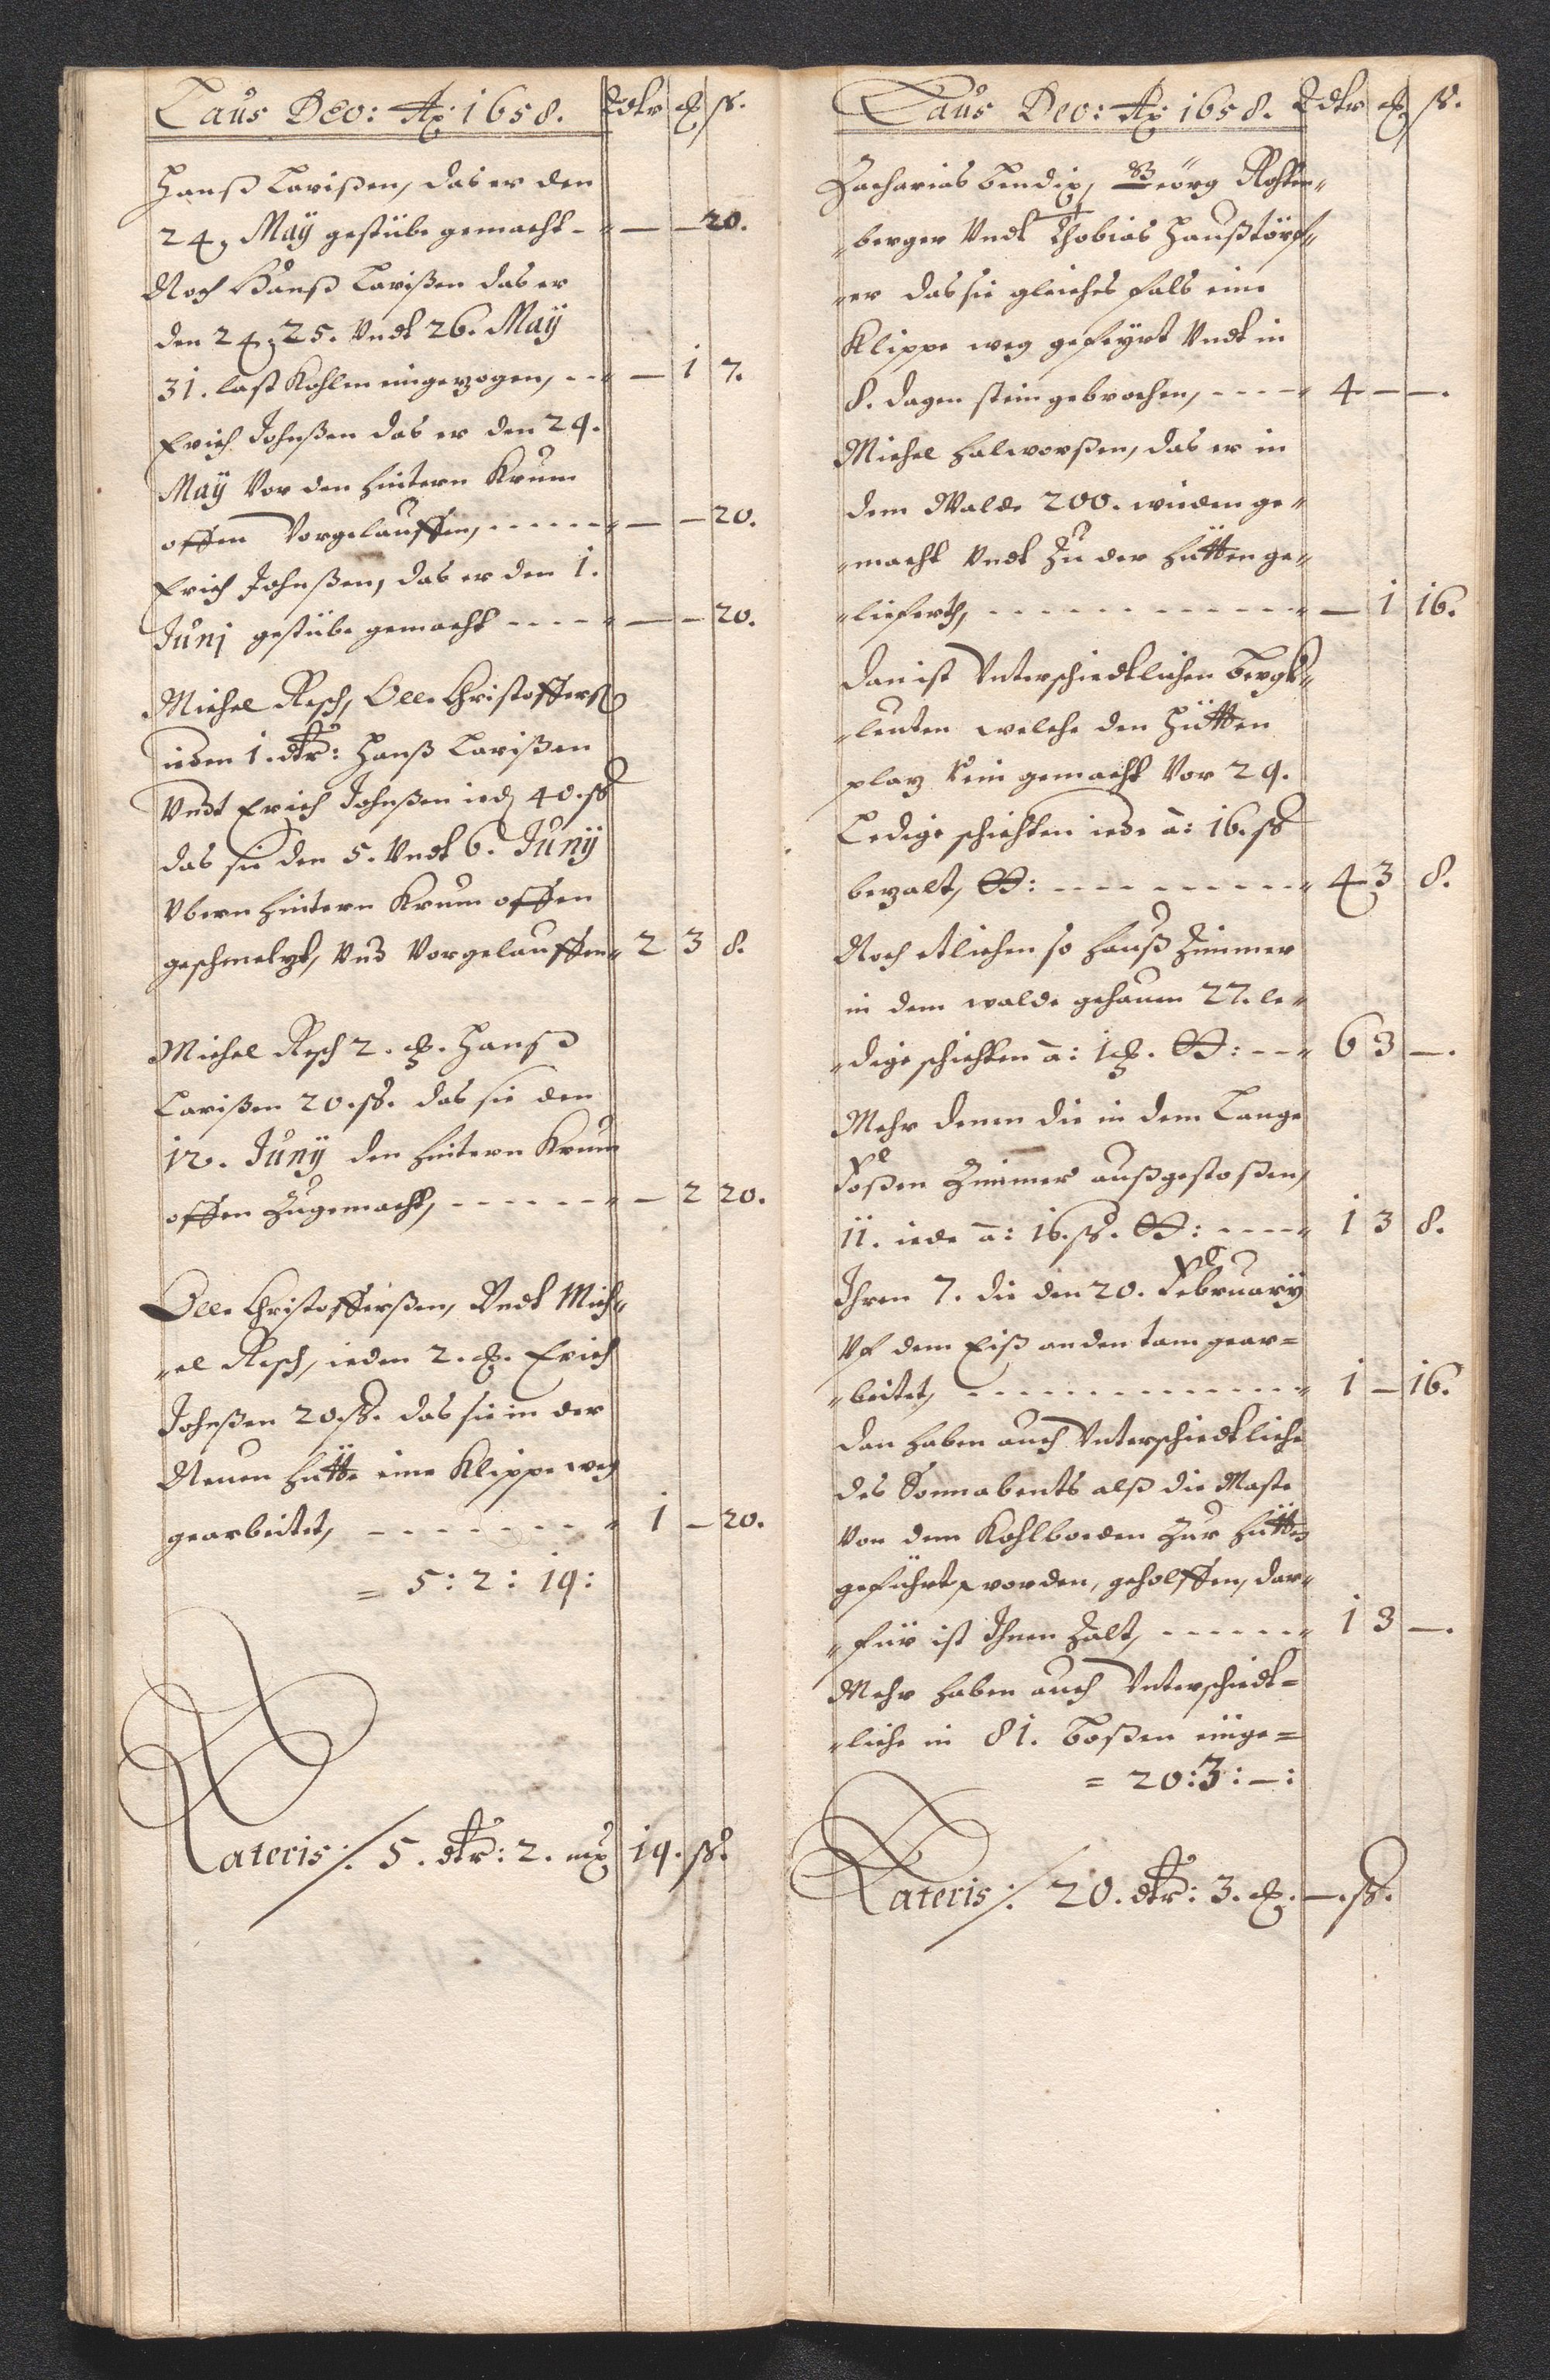 Laus Deo: Aō: 1658. Rdtr ꝶ ß.
Hanß Larißen, das er den
24. Maÿ gestübe gemacht - " — — 20.
Noch Hanß Larißen das er
den 24. 25. Undt 26. Maÿ
31. last Kohlen eingezogen, - - " — 1 7.
Erich Johnßen das er den 29.
Maÿ Vor den hintern Krum
offen Vorgelauffen, - - - - - " — — 20.
Erich Johnßen, das er den 1.
Junj gestübe gemacht - - - - " — — 20.
Michel Resch, Olle Christoffers
ieden 1. dtr: Hanß Larißen
Undt Erich Johnßen ied 40. ß
das sie den 5. Undt 6. Junÿ
Vbern hintern Krum offen
geschmeltzt, Und Vorgelauffen " 2 3 8.
Michel Resch 2. ꝶ. Hanß
Larißen 20. ß. das sie den
12. Junÿ den hintern Krum
offen Zugemacht, - - - - - - " — 2 20.
Olle Christofferßen, Undt Mich"
"el Resch, ieden 2. ꝶ. Erich
Johnßen 20. ß. das sie in der
Neuen hütte eine Klippe weg
gearbeitet, - - - - - - - - " 1 — 20.
= 5: 2: 19:
Lateris:/. 5. dtr: 2. mꝶ 19. ß.
Laus Deo: Aō: 1658. Rdtr ꝶ ß.
Zacharias Bendix, Geörg Rohten"
"berger Undt Thobias Haußtörf"
"er das sie gleiches fals eine
Klippe weg gefeyrt Undt in
8. dagen stein gebrochen, - - - - " 4 — —.
Michel Halworßen, das er in
dem Walde 200. wieden ge"
"macht Undt Zu der hütten ge"
"lieferth, - - - - - - - - - - - " — 1 16.
Dan ist Unterschiedtlichen Bergk"
"leuten welche den Hütten
platz rein gemacht Vor 29.
Ledige schichten iede à: 16. ß
bezalt, : - - - - - - - - - " 4 3 8.
Noch etlichen so hauß Zimmer
in dem walde gehauen 27. le"
"dige schichten à: 1 ꝶ. : - - " 6 3 —.
Mehr denen die in dem Lange
Foßen Zimmer außgestoßen,
11. iede à: 16. ß. : - - - - " 1 3 8.
Ihren 7. die den 20. Februarÿ
Vf dem Eiß an den tam gear=
"beitet, - - - - - - - - - - - - " 1 — 16.
Dan haben auch Unterschiedtliche
des Sonnabents alß die Maste
Von dem Kohlboeden Zur hütten
geführt worden, geholffen, dar"
"für ist Ihnen Zalt, - - - - - - " 1 3 —.
Mehr haben auch Unterschiedt=
"liche in 81. Boßen einge=
= 20: 3: —:
Lateris:/. 20. dtr: 3. ꝶ. —. ß.